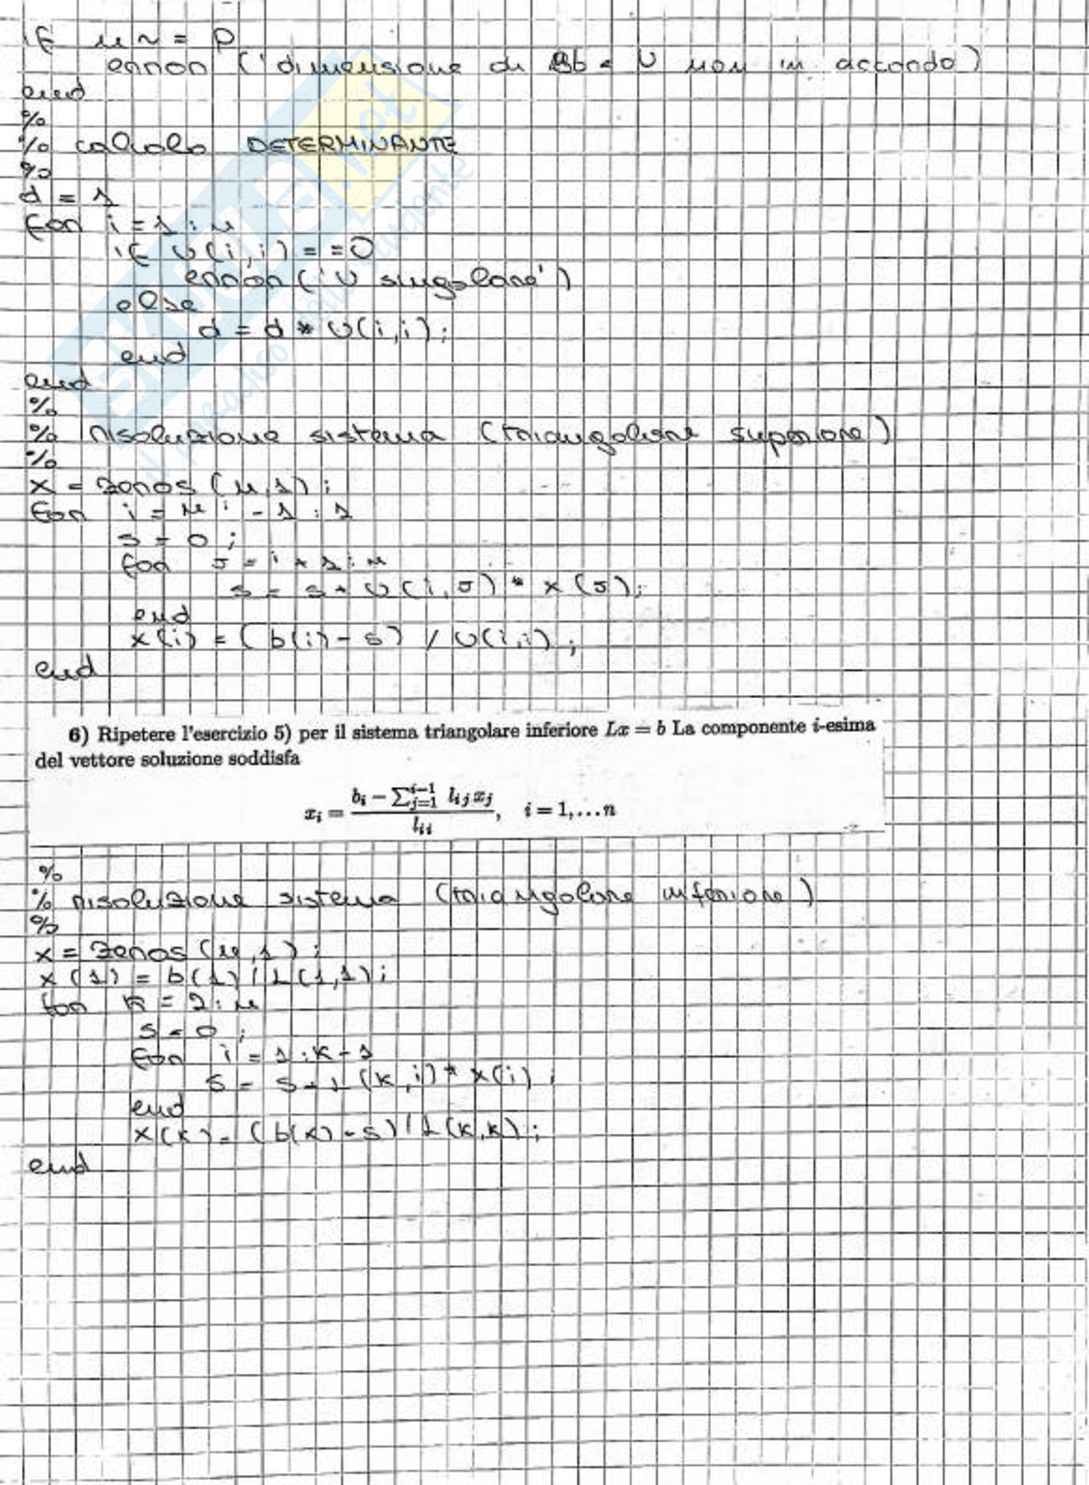 if n ~ = p
error ('dimensione di b e U non in accordo')
end
%
% calcolo DETERMINANTE
%
d = 1
for i = 1 : n
if U(i,i) = = 0
error ('U singolare')
else
d = d * U(i,i);
end
end
%
% risoluzione sistema (triangolare superiore)
%
x = zeros (n,1);
for i = n : -1 : 1
s = 0 ;
for j = i + 1 : n
s = s + U(i,j) * x(j);
end
x(i) = (b(i) - s) / U(i,i) ;
end
6) Ripetere l'esercizio 5) per il sistema triangolare inferiore Lx = b La componente i-esima
del vettore soluzione soddisfa
x_i = \frac{b_i - \sum_{j=1}^{i-1} l_{ij} x_j}{l_{ii}}, i = 1, ... n
%
% risoluzione sistema (triangolare inferiore)
%
x = zeros (n,1);
x(1) = b(1) / L(1,1);
for k = 2 : n
s = 0 ;
for i = 1 : k - 1
s = s + L(k,i) * x(i) ;
end
x(k) = (b(k) - s) / L(k,k) ;
end